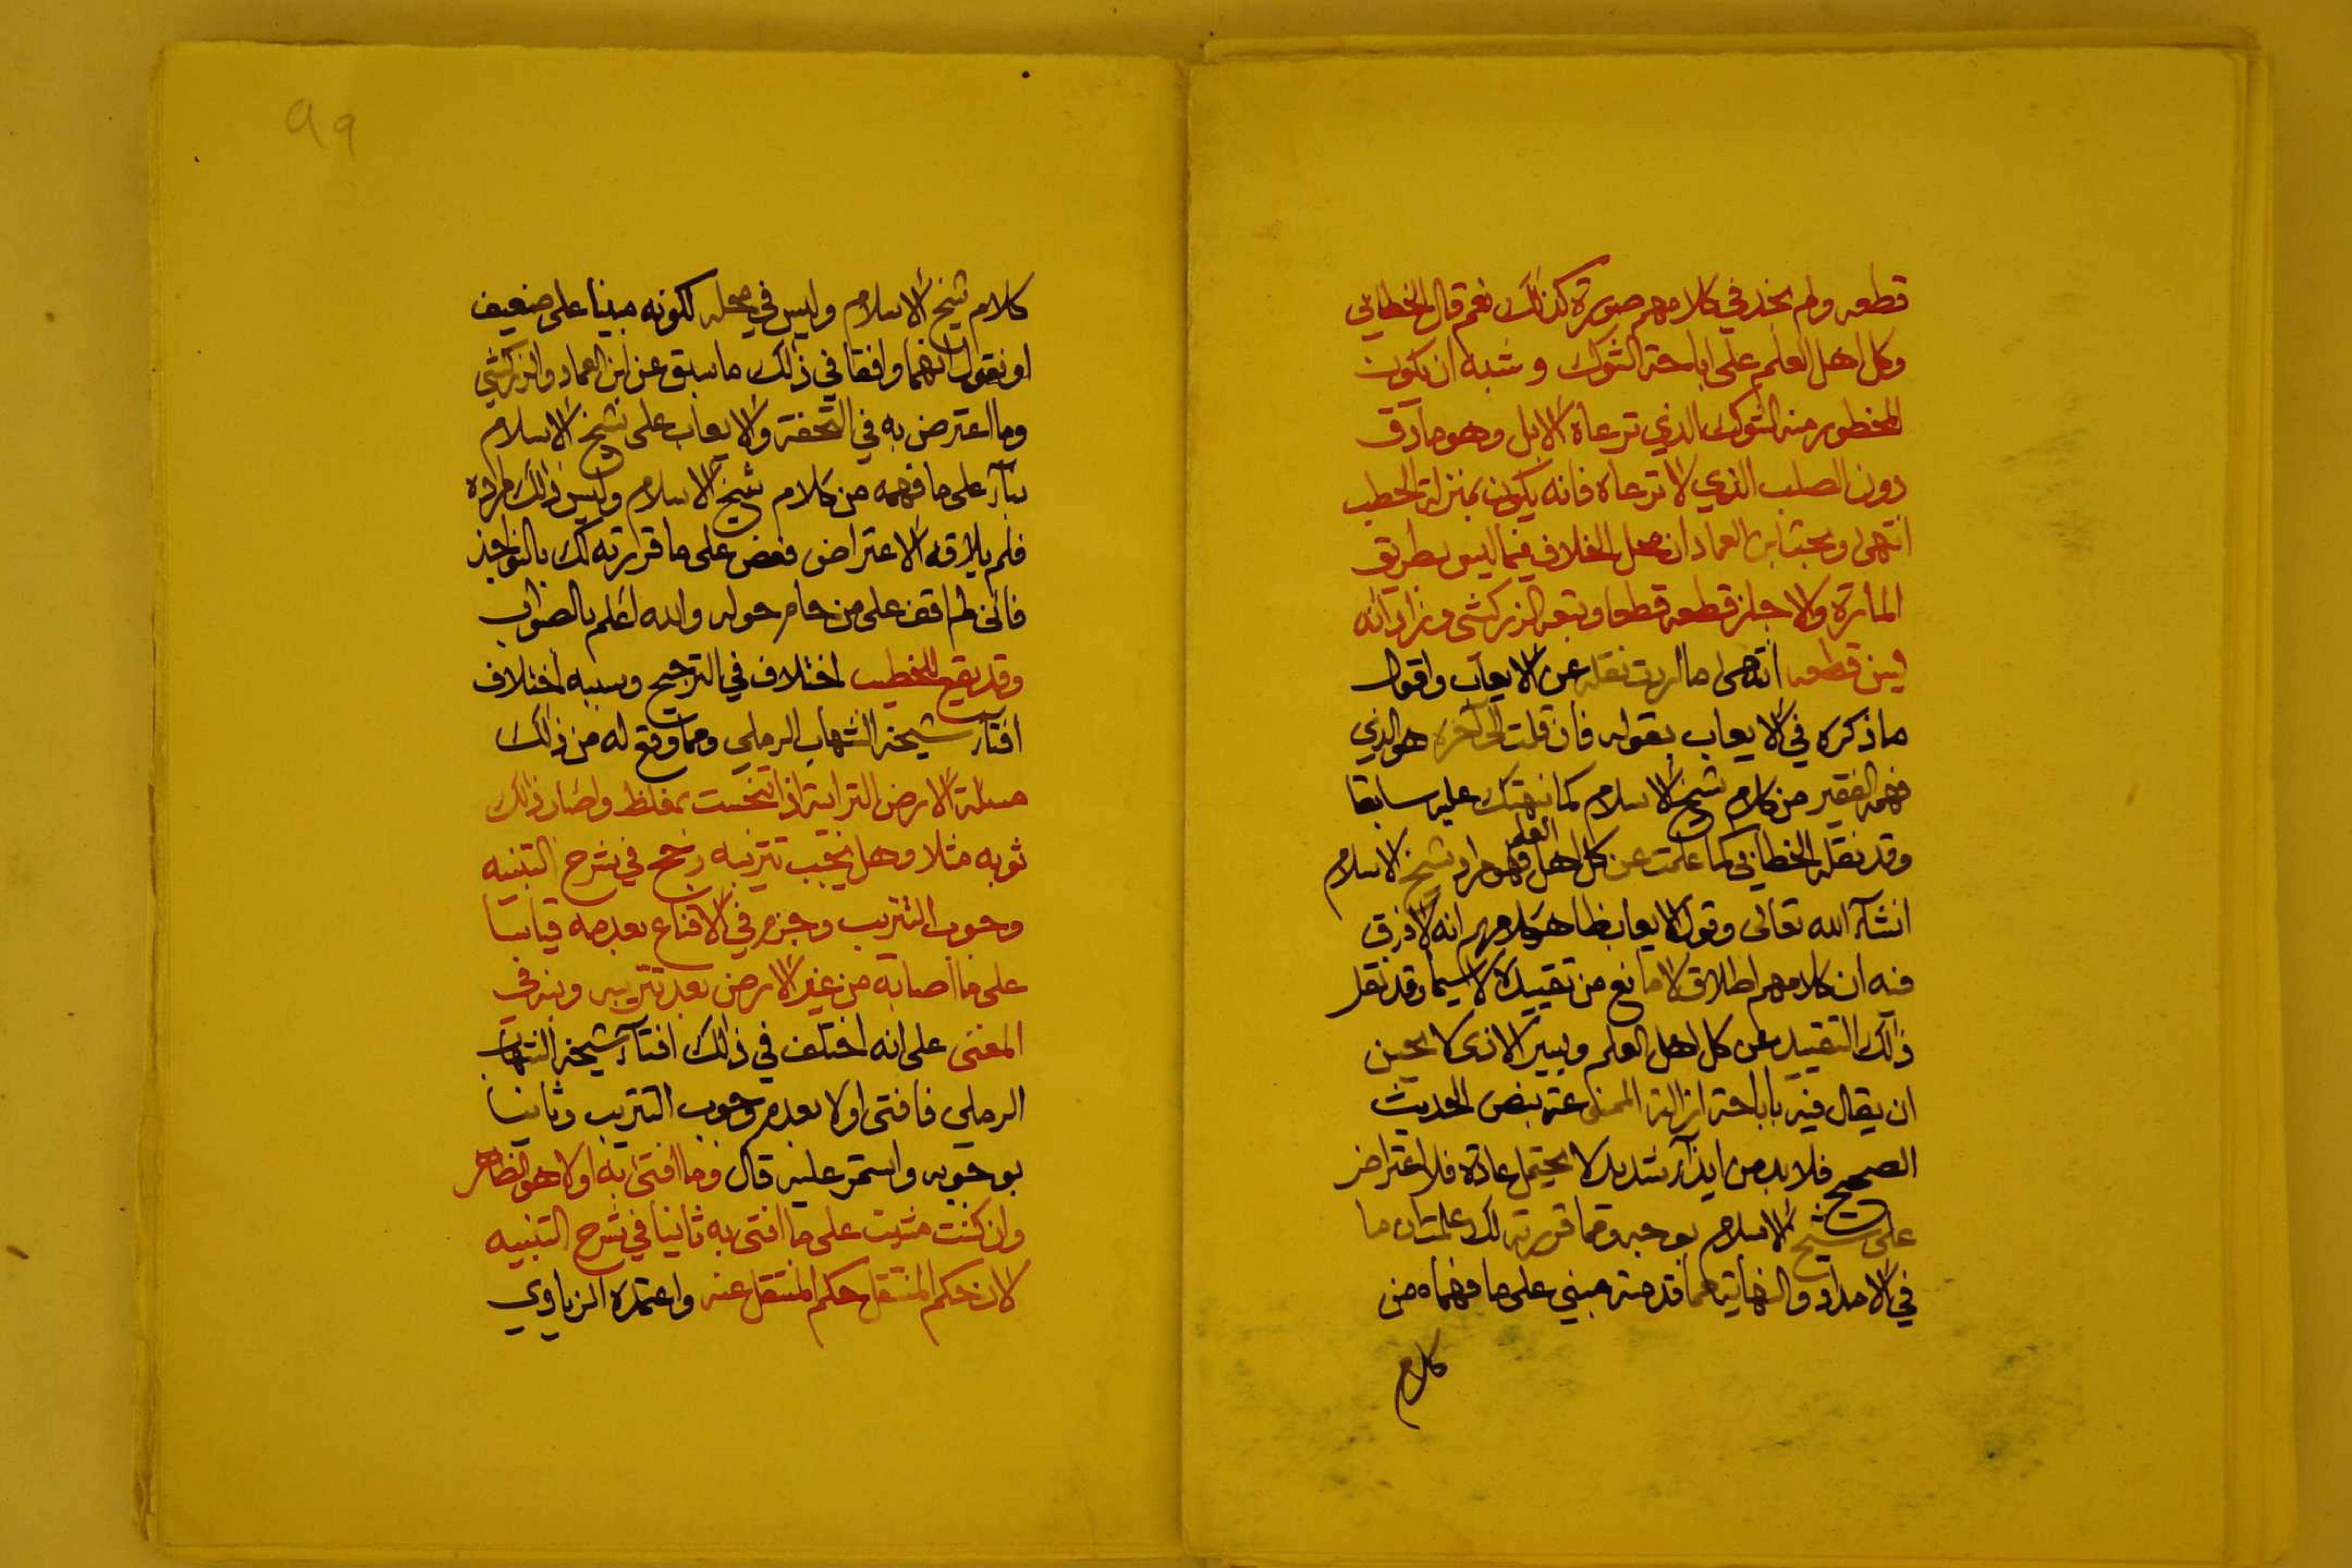 قطعه ولم نجد في كلامهم صورة كذلك نعم قال الخطابي
وكل اهل العلم على اباحة الشوك وشبه ان يكون
المحظور منه الشوك الذي ترعاه الابل وهو مادق
دون الصلب الذي لا ترعاه فانه يكون بمنزلة الحطب
انتهى وبحث ابن العماد ان محل الخلاف فيما ليس بطريق
المارة والا جاز قطعه قطعا وتبعه الزركشي وزاد انه
يسن قطعه انتهى ما اردت نقله عن الايعاب واقول
ما ذكره في الايعاب بقوله فان قلت الى آخره هو الذي
فهمه الفقير من كلام شيخ الاسلام كما نبهتك عليه سابقا
وقد نقله الخطابي كما علمت عن كل اهل العلم فهو مراد شيخ الاسلام
انشآء الله تعالى وقول الايعاب ظاهر كلامهم انه لا فرق
فيه ان كلامهم اطلاق لا مانع من تقييده لا سيما وقد نقل
ذلك التقييد عن كل اهل العلم ويسير الاذى لا يحسن
ان يقال فيه باباحة ازالته الممنوعة بنص الحديث
الصحيح فلا بد من ايذآء شديد لا يحتمل عادة فلا اعتراض
على شيخ الاسلام بوجه ومما قررته لك علمت ان ما
في الامداد والنهاية مما قدمته مبني على ما فهماه من
كلام
٩٩
كلام شيخ الاسلام وليس في محله لكونه مبنيا على ضعيف
او نقول انهما وافقا في ذلك ما سبق عن ابن العماد والزركشي
وما اعترض به في التحفة والايعاب على شيخ الاسلام
بنآء على ما فهمه من كلام شيخ الاسلام وليس ذلك مراده
فلم يلاقه الاعتراض فعض على ما قررته لك بالنواجذ
فانى لم اقف على من حام حوله والله اعلم بالصواب
وقد يقع للخطيب اختلاف في الترجيح وسببه اختلاف
افتآء شيخه الشهاب الرملي ومما وقع له من ذلك
مسئلة الارض الترابية اذا تنجست بمغلظ واصاب ذلك
ثوبه مثلا وهل يجب تتريبه رجح في شرح التنبيه
وجوب التتريب وجزم في الاقناع بعدمه قياسا
على ما اصابه من غير الارض بعد تتريبه ونبه في
المغنى على انه اختلف في ذلك افتآء شيخه الشهاب
الرملي فافتى اولا بعدم وجوب التتريب وثانيا
بوجوبه واستمر عليه قال وما افتى به اولا هو الظاهر
وان كنت مشيت على ما افتى به ثانيا في شرح التنبيه
لان حكم المنتقل حكم المنتقل عنه واعتمده الزيادي